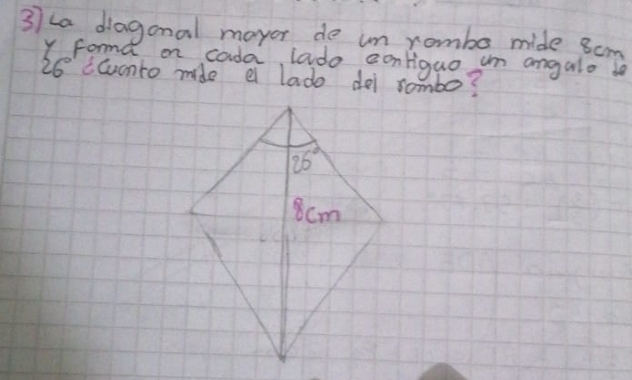 3) La diagonal mayor de un rombo mide 8cm
y forma en cada lado contiguo un angulo de
26° ¿Cuanto mide el lado del rombo?
26°
8cm